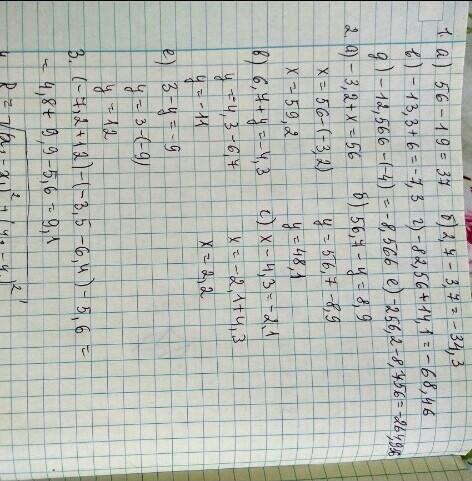 1. а) 56 - 19 = 37 б) 2,7 - 37 = -34,3
в) -13,3 + 6 = -7,3 г) -82,56 + 14,1 = -68,46
д) -12,566 - (-4) = -8,566 е) -256,2 - 8,7456 =
2. а) -3,2 + x = 56 б) 56,7 - y = 8,9
x = 56 - (-3,2) y = 56,7 - 8,9
x = 59,2 y = 48,1
в) 6,7 + y = -4,3 с) x - 4,3 = -2,1
y = -4,3 - 6,7 x = -2,1 + 4,3
y = -11 x = 2,2
е) 3 - y = -9
y = 3 - (-9)
y = 12
3. (-7,2 + 12) - (-3,5 - 6,4) - 5,6 =
= 4,8 + 9,9 - 5,6 = 9,1